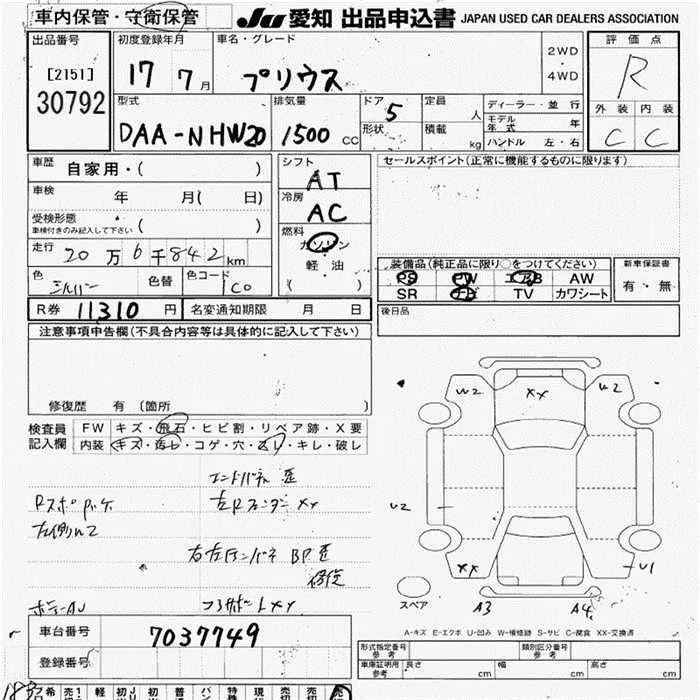 車内保管・守衛保管
JU 愛知 出品申込書 JAPAN USED CAR DEALERS ASSOCIATION
出品番号
[2151]
30792
初度登録年月
17 7月
車名・グレード
プリウス
2WD
・
4WD
評価点
R
外装 内装
C C
型式
DAA-NHW20
排気量
1500 CC
ドア
5
形状
定員
人
積載
kg
ディーラー・並行
モデル年式 年
ハンドル 左・右
車歴 自家用・( )
車検 年 月( 日)
受検形態
車検付きのみ記入して下さい ( )
走行 20万6千842km
色 シルバー 色替 色コード 1C0
シフト
AT
冷房
AC
燃料
ガソリン
軽油
( )
セールスポイント(正常に機能するものに限ります)
装備品(純正品に限り○をつけてください)
PS PW エアB AW
SR ナビ TV カワシート
新車保証書
有・無
R券 11310 円 名変通知期限 月 日
後日品
注意事項申告欄(不具合内容等は具体的に記入して下さい)
修復歴 有 〔箇所 )
検査員記入欄
FW キズ・飛石・ヒビ割・リペア跡・X要
内装 キズ・汚レ・コゲ・穴・スレ・キレ・破レ
エンドパネル 歪
左Rフェンダー XX
左側W2
右左Fインパネ BP歪
修復
コアサポートXX
W2 XX W2
U2
XX U1
スペア
A3 A4
A-キズ E-エクボ U-凹み W-補修跡 S-サビ C-腐食 XX-交換済
車台番号 7037749
登録番号
形式指定番号
参考
類別区分番号
参考
車庫証明用
参考
長さ cm 幅 cm 高さ cm